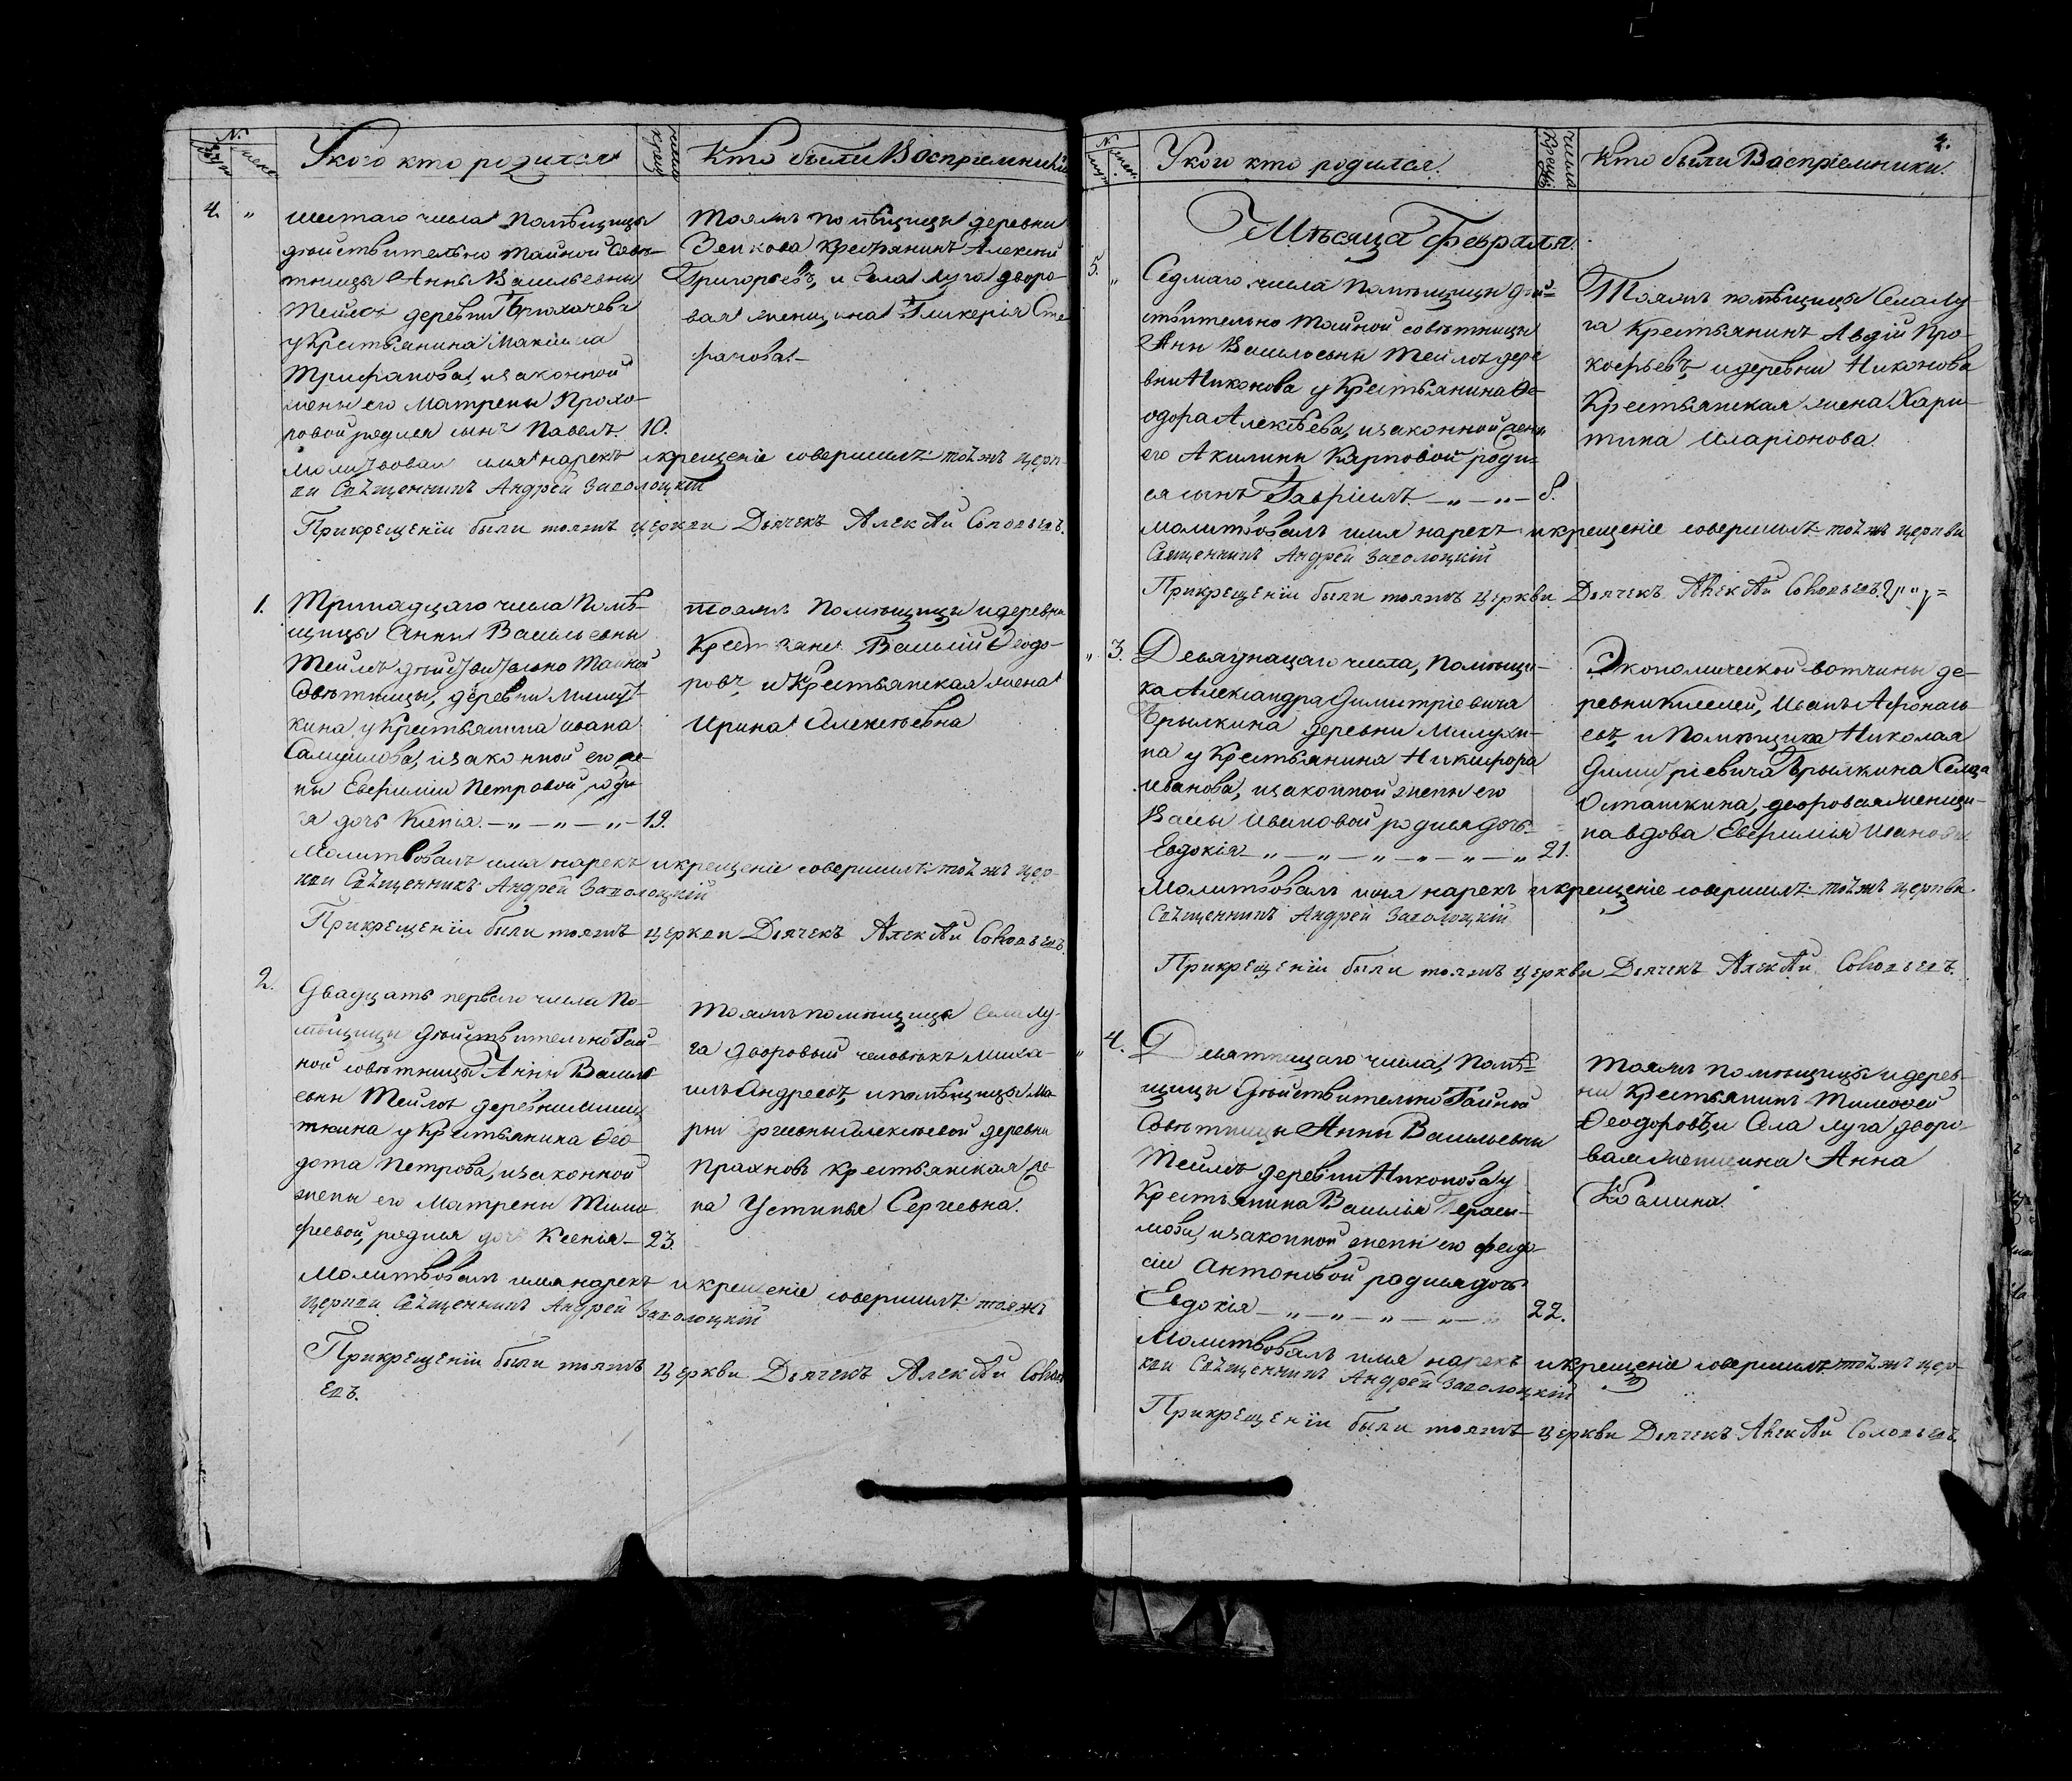 №
муж.
жен.
У кого кто родился
число крещ.
Кто были Воспріемники
4. "
шестаго числа Помѣщицы
дѣйствительно тайной Совѣ-
тницы Анны Васильевны
Тейлсъ деревни Брюхачева
у Крестьянина Максима
Трифанова, изаконной
жены его Матрены Прохо-
ровой родился сынъ Павелъ. 10.
Тояжъ помѣщицы деревни
Зенкова Крестьянинъ Алексей
Григорьевъ, и Села Луга дворо-
вая женщина Гликерія Сте
фанова
Молитвовал имя нарекъ икрещеніе совершилъ: тоѣжъ церк-
ви Свѣщенникъ Андрей Заболоцкій
Прикрещеніи были тояжъ церкви Дьячекъ Алекѣй Соловьевъ.
1.
Тринадцаго числа Помѣ-
щицы Анны Васильевны
Тейлсъ дѣйствительно Тайной
Совѣтницы, деревни Мишут-
кина у Крестьянина ивана
Самуилова, изаконной его же-
ны Евфиміи Петровой роди
ся дочь Ксенія. — " — " — " — 19.
тояжъ Помѣщицы идеревни
Крестьяне Василій Ѳеодо-
ровъ, и Крестьянская жена
Ирина Алексѣевна
Молитвовалъ имя нарекъ икрещеніе совершилъ: тоѣжъ цер-
кви Свѣщенникъ Андрей Заболоцкій
Прикрещеніи были тояжъ церкви Дьячекъ Алекѣй Соловьевъ
2.
Двадцать перваго числа По-
мѣщицы Дѣйствительно Тай-
ной совѣтницы Анны Василь
евны Тейлсъ деревни Мишу
ткина у Крестьянина Ѳео
дота Петрова, изаконной
жены его Матрены Тимо
феевой, родися дочь Ксенія — 23.
Тояжъ помѣщицы Села Лу-
га Дворовый человѣкъ Миха-
илъ Андреевъ, ипомѣщицы Ма-
рьи Алексѣевой деревни
Прахновъ крестьянская же-
на Устинья Сергиевна.
Молитвовалъ имя нарекъ икрещеніе совершилъ: тояжъ
церкви Свѣщенникъ Андрей Заболоцкій
Прикрещеніи были тояжъ церкви Дьячекъ Алекѣй Соловь
евъ.
№
муж.
жен.
У кого кто родился.
число Крещ.
Кто были Воспріемники.
2.
Мѣсяца Февраля.
5. "
Седмаго числа Помѣщицы дѣй-
ствительно тайной совѣтницы
Анны Васильевны Тейлсъ дере
вни Никонова у Крестьянина Ѳе-
одора Алексѣева, изаконной жены
его Акилины Карповой роди-
ся сынъ Гавріилъ. — " — " — 8.
Тояжъ помѣщицы Села Лу-
га Крестьянинъ Авдій Про-
кофьевъ, идеревни Никонова
Крестьянская жена Хари-
тина Иларіонова.
Молитвовалъ имя нарекъ икрещеніе совершилъ: тоѣжъ церкви
Священникъ Андрей Заболоцкій
Прикрещеніи были тояжъ церкви Дьячекъ Алекѣй Соловьевъ.
" 3.
Девятнацаго числа, помѣщи-
ка Александра Димитріевича
Брылкина деревни Милухи-
на у Крестьянина Никифора
иванова, изаконной жены его
Васы Ивановой родися дочь
Евдокія — " — " — " — " — " — " 21.
Экономической вотчины де-
ревни Киселей, Иванъ Афонась-
евъ и Помѣщика Николая
Димитріевича Брылкина Сельца
Осташкина, дворовая женщи-
на вдова Евфимія Иванова
Молитвовалъ имя нарекъ икрещеніе совершилъ: тоѣжъ церкви
Свѣщенникъ Андрей Заболоцкій
Прикрещеніи были тояжъ церкви Дьячекъ Алекѣй Соловьевъ.
" 4.
Девятнацаго числа, Помѣ-
щицы Дѣйствительно Тайной
Совѣтницы Анны Васильевны
Тейлсъ деревни Никонова у
Крестьянина Василія Гераси-
мова, изаконной жены его Феодо-
сіи Антоновой родися дочь
Евдокія — " — " — " — " — " 22.
Тояжъ помѣщицы идерев-
ни Крестьянинъ Тимофей
Ѳеодоровъ, и Села Луга дворо-
вая женщина Анна
Козмина.
Молитвовалъ имя нарекъ икрещеніе совершилъ: тоѣжъ цер-
кви Свѣщенникъ Андрей Заболоцкій
Прикрещеніи были тояжъ церкви Дьячекъ Алекѣй Соловьевъ.